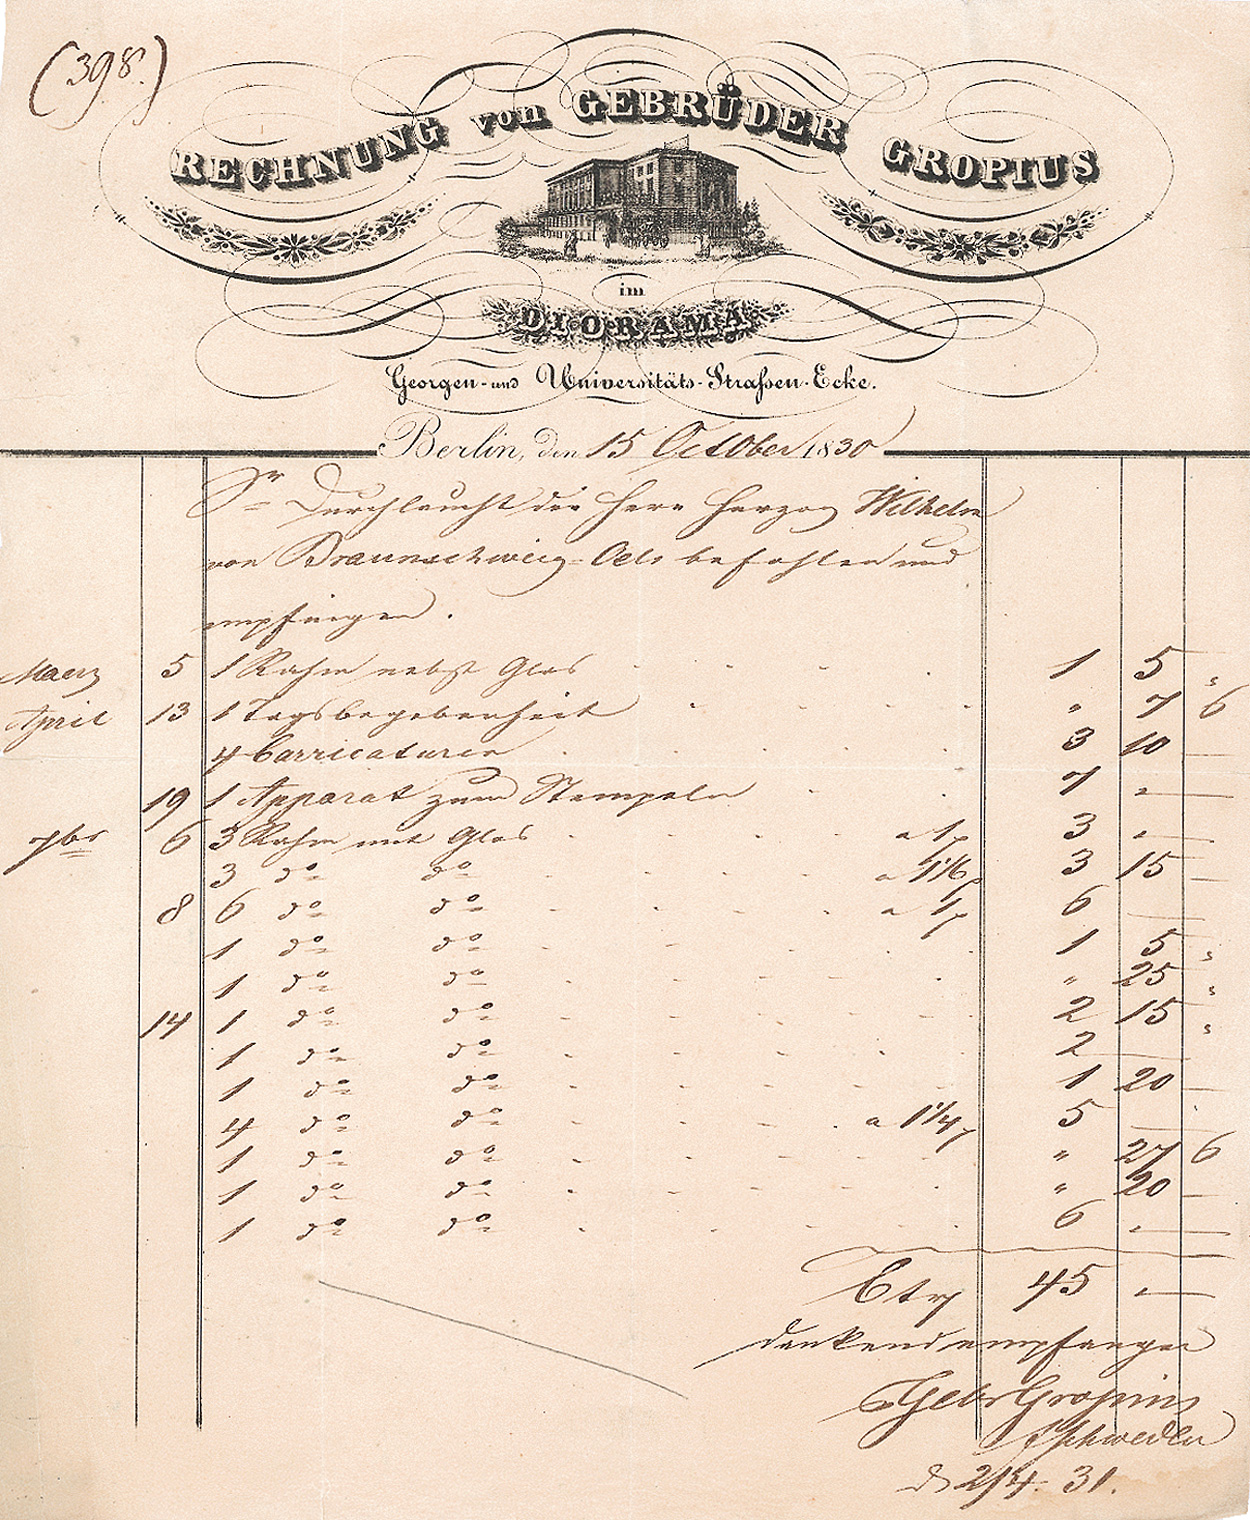 (398.)
RECHNUNG von GEBRÜDER GROPIUS
im
DIORAMA
Georgen- und Universitäts-Straſsen-Ecke.
Berlin, den 15 October 1830
Sr Durchlaucht der Herr Herzog Wilhelm
von Braunschweig-Oels befohlen und
empfingen.
Maerz 5 1 Rahm nebst Glas 1 5 "
April 13 1 Tagsbegebenheit " 7 6
4 Carricaturen 3 10 —
19 1 Apparat zum Stempeln 7 " —
7br 6 3 Rahm mit Glas a 1 3 " —
3 do do a 1 1/6 3 15 —
8 6 do do a 1 6 —
1 do do 1 5 "
1 do do " 25 "
14 1 do do 2 15 "
1 do do 2 —
1 do do 1 20 —
4 do do a 1 1/4 5 —
1 do do " 27 6
1 do do " 20 —
1 do do 6 " —
45 " —
dankend empfangen
Gebr Gropius
Schwedler
d 2/4. 31.